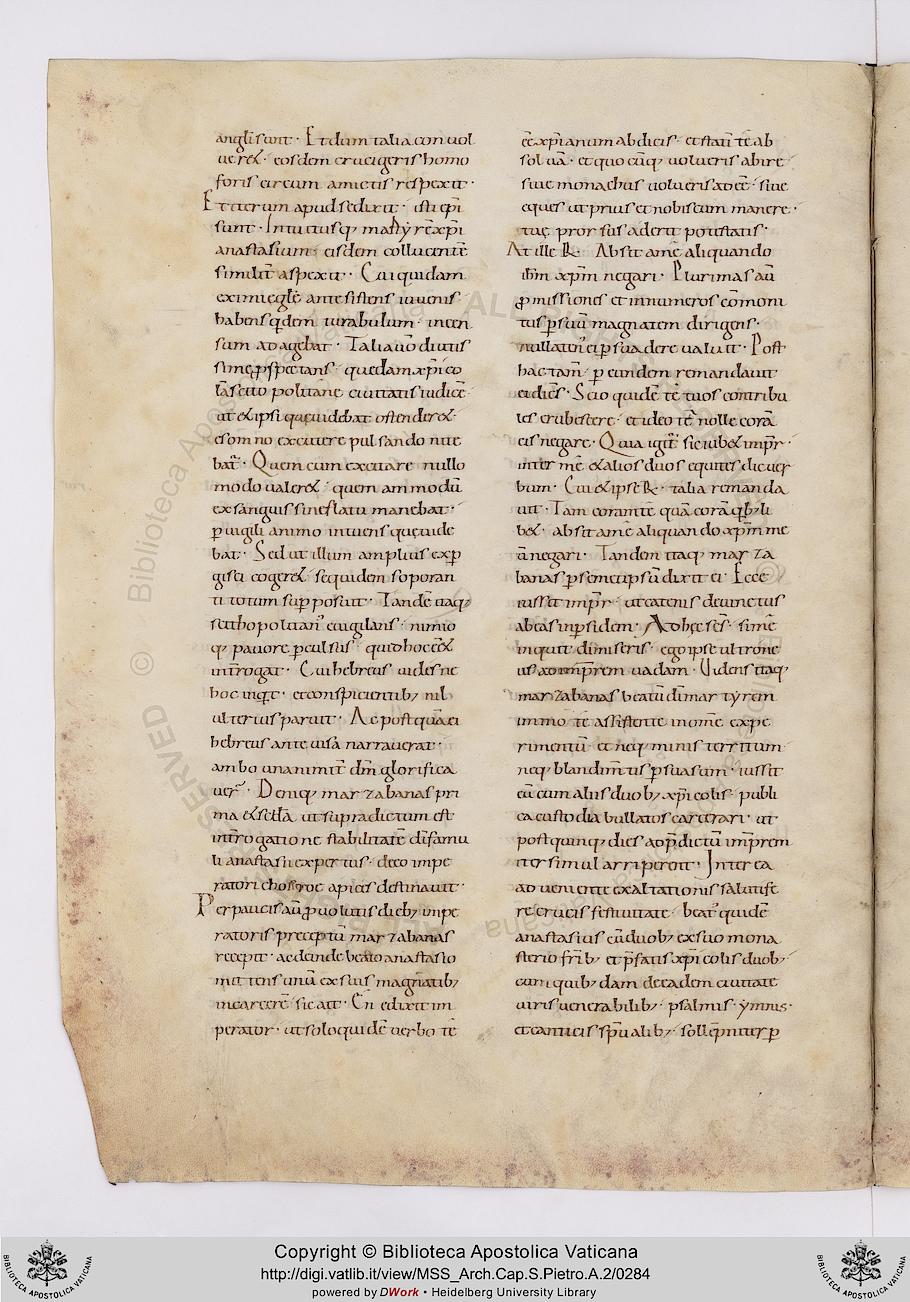 angli sunt · Et dum talia con uol
ueret · eosdem crucigeris homo
foris circum amictis respexit ·
Et iterum apud se dixit · isti ep̄i
sunt · Intuitusq; martyrē xp̄i
anastasium · eisdem collucentē
similit̄ aspexit · Cui quidam
eximię glę̄ ante sistens iuuenis
habens qdem turabulum · incen
sum adagebat · Talia uō diutis
sime ꝑspectans · quędam xp̄ico
lā scitopolitanę ciuitatis iudicē
ut et ipsi quę uidebat ostenderet ·
e somno excutere pulsando nite
bat̄ · Quem cum excitare nullo
modo ualeret · quem ammodū
exsanguis sine flatu manebat ·
ꝑuigili animo intuens quę uide
bat · Sed ut illum amplius exꝑ
gisci cogeret · se quidem soporan
ti totum suꝑposuit · Tandē itaq;
scithopolitan' euigilans · nimio
q; pauore ꝑculsus · quid hoc eēt
int̄rogat · Cui hebreus uides ne
hoc inqt · et conspicientib; nil
ulterius paruit · Ac postquā ei
hebreus ante uisā narrauerat ·
ambo unanimit̄ dm̄ glorifica
uer̄ · Deniq; marzabanas pri
ma et sctā ut supradictum est
int̄rogatione stabilitatē dī famu
li anastasii expertus · de eo impe
ratori chosroę apices destinauit ·
Per paucis aū ꝓuolutis dieb; impe
ratoris preceptū marzabanas
recepit · ac deinde beato anastasio
mittens unū ex suis magnatib;
in carcerē sic ait · En edixit im
perator · ut solo quidē uerbo tē
eē xp̄ianum abdicis · et statī tē ab
soluā · et quo cūq; uolueris abire
siue monachus uolueris adeē · siue
eques ut prius et nobiscum manere ·
tuę prorsus aderit potestatis ·
At ille R · Absit a mē aliquando
ihm xp̄m negari · Plurimas aū
ꝓmissiones et innumeros cōmoni
tus ꝑ suū magnatem dirigens ·
nullaten' ei ꝑsuadere ualuit · Post
hac tam̄ · ꝑ eundem remandauit
ei dicēs · Scio quidē tē tuos contribu
les erubescere · et ideo tē nolle corā
eis negare · Quia igit̄ sic iubet impr̄ ·
inter mē et alios duos equites dic uer
bum · Cui et ipse R · talia remanda
uit · Tam coram tē quā corā qb; li
bet · absit a mē aliquando xp̄m me
ū negari · Tandem itaq; marza
banas ꝑ semetipsū dixit ei · Ecce
iussit impr̄ · ut catenis deuinctus
abeas in ꝑsidem · At hęc scs̄ · si mē
inquit dimiseris · ego ipse ultrone
us ad imp̄rem uadam · Videns itaq;
marzabanas beatū dī martyrem
immo tē assistente in om̄e expe
rimentū · et neq; minis territum
neq; blandimtis ꝑsuasum · iussit
eū cum aliis duob; xp̄icolis publi
ca custodia bullatos carcerari · ut
post quinq; dies ad p̄dictū imp̄rem
iter simul arriperent · Inter ea
adueniente exaltationis salutife
re crucis festiuitate · beat' quidē
anastasius cū duob; ex suo mona
sterio fr̄ib; et p̄fatis xp̄icolis duob;
cum quibusdam de eadem ciuitate
uiris uenerabilib; psalmis · ymnis ·
et canticis spū alib; · sollēpniter ꝑ
Copyright © Biblioteca Apostolica Vaticana
http://digi.vatlib.it/view/MSS_Arch.Cap.S.Pietro.A.2/0284
powered by DWork • Heidelberg University Library